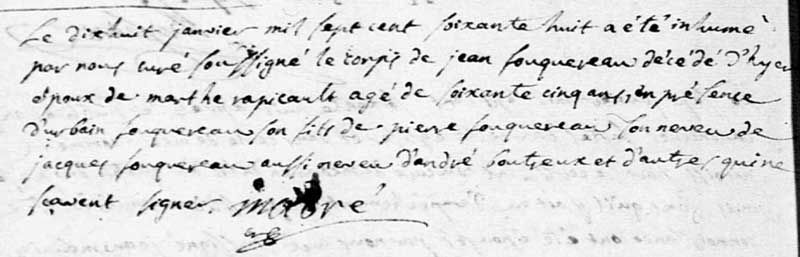 Le dixhuit janvier mil sept cent soixante huit a été inhumé
par nous curé soussigné le corps de jean fouquereau décédé d'hyer
époux de marthe rapicault agé de soixante cinq ans, en présence
d'urbain fouquereau son fils de pierre fouquereau son neveu de
jacques fouquereau aussi neveu d'andré boutreux et d'autres qui ne
sçavent signer